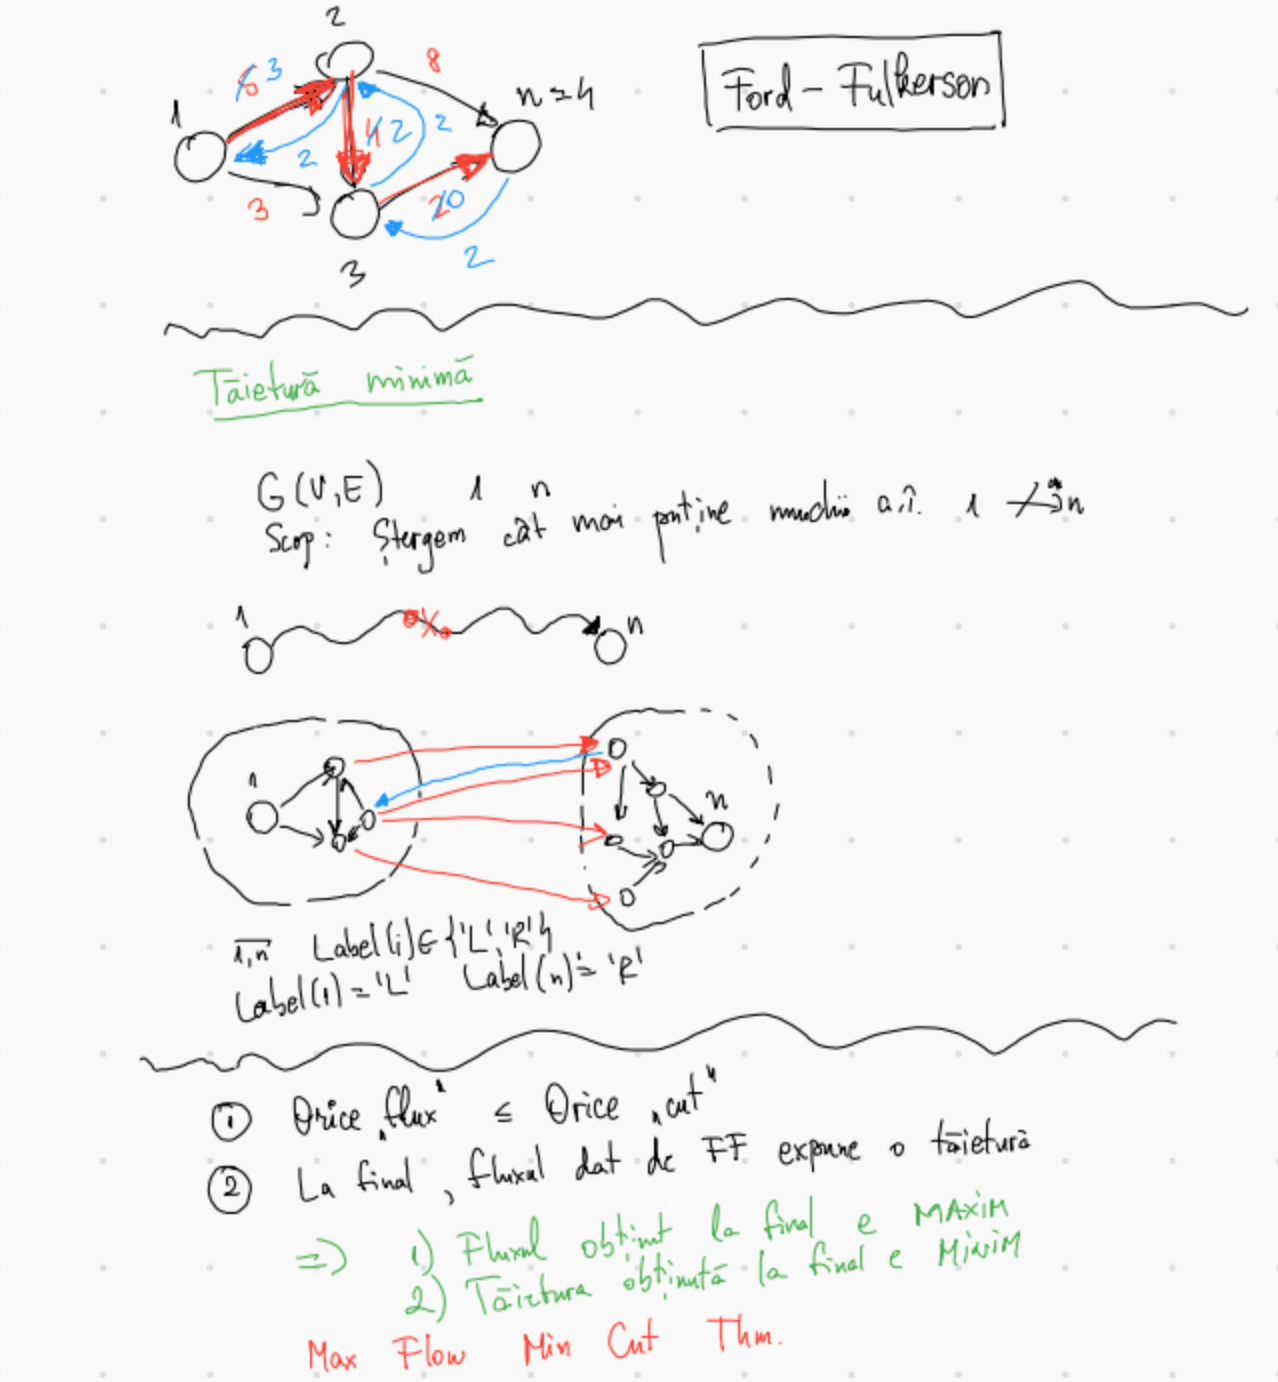 2
6 3
8
n=4
Ford - Fulkerson
1
2
4 2
2
3
2 0
2
3
Tăietură minimă
G(V,E) 1 n
Scop: Ștergem cât mai puține muchii a.î. 1 n
1 n
1 n
1,n Label(i)∈{'L','R'}
Label(1)='L' Label(n)='R'
① Orice „flux" ≤ Orice „cut"
② La final, fluxul dat de FF expune o tăietură
=> 1) Fluxul obținut la final e MAXIM
2) Tăietura obținută la final e MINIM
Max Flow Min Cut Thm.